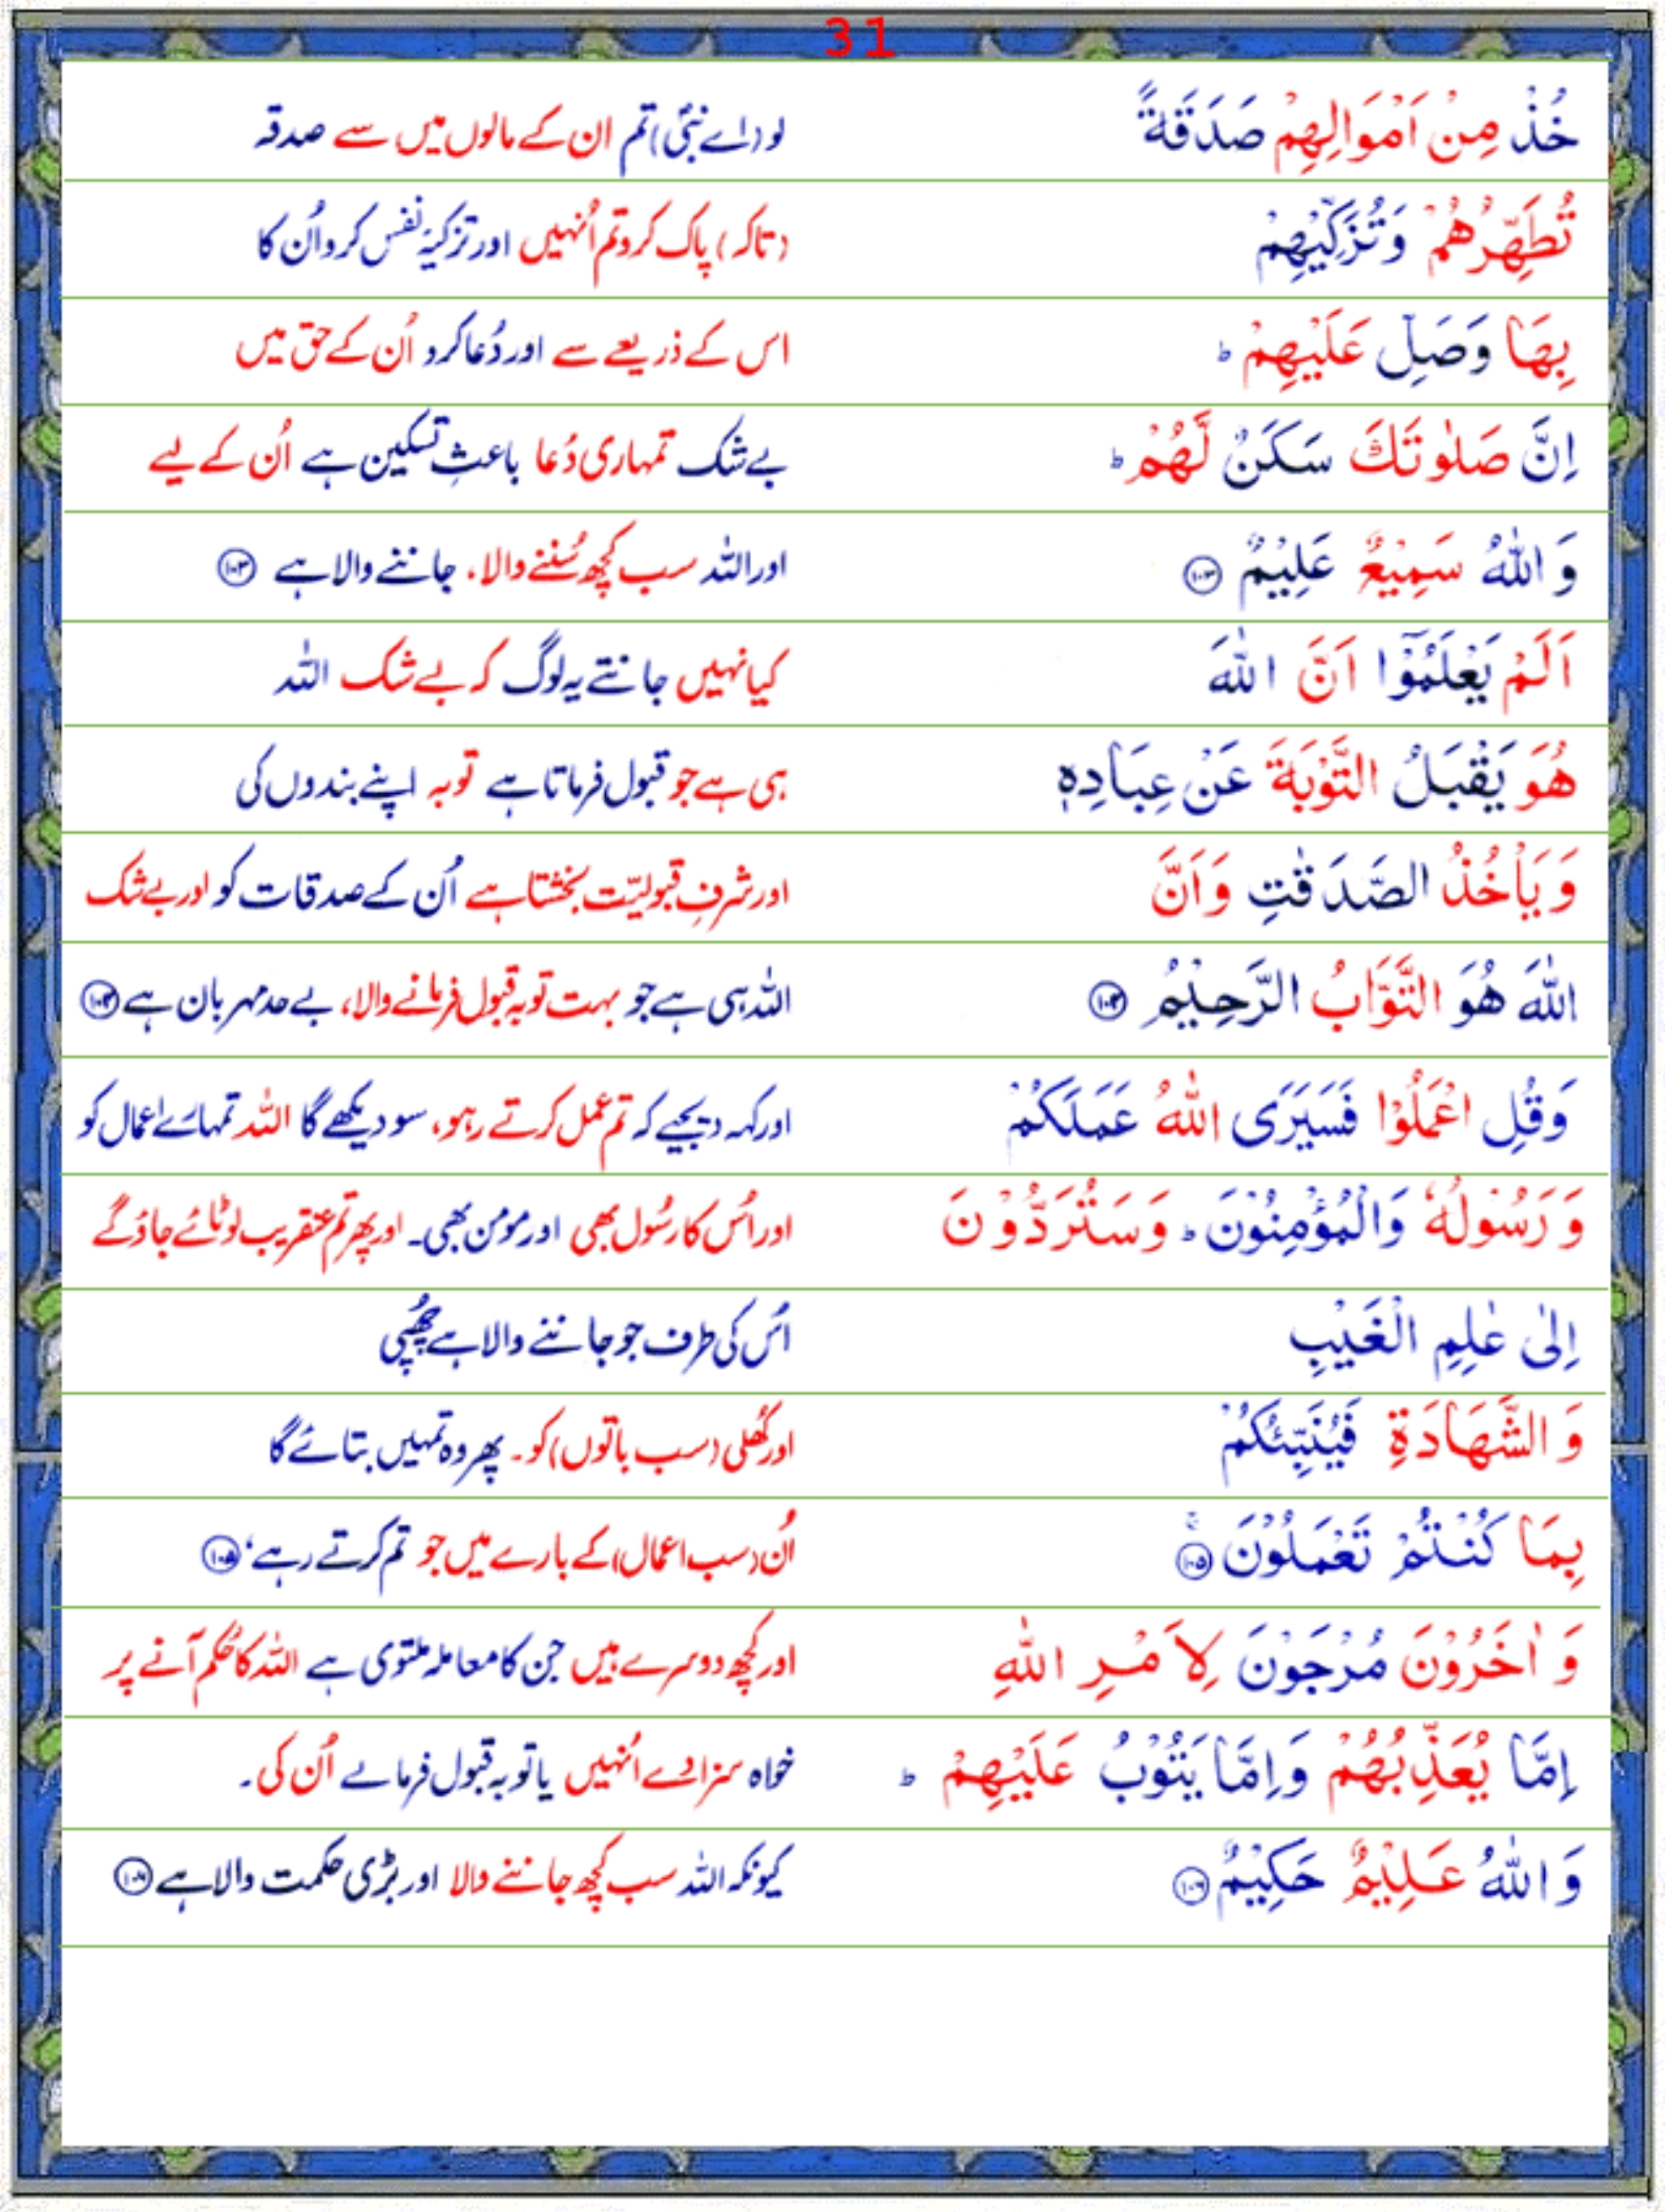 31
خُذْ مِنْ اَمْوَالِهِمْ صَدَقَةً لو (اے نبیؐ) تم ان کے مالوں میں سے صدقہ
تُطَهِّرُهُمْ وَتُزَكِّيْهِمْ (تاکہ) پاک کرو تم اُنہیں اور تزکیۂ نفس کرو اُن کا
بِهَا وَصَلِّ عَلَيْهِمْ ؕ اس کے ذریعے سے اور دُعا کرو اُن کے حق میں
اِنَّ صَلٰوتَكَ سَكَنٌ لَّهُمْ ؕ بے شک تمہاری دُعا باعثِ تسکین ہے اُن کے لیے
وَاللّٰهُ سَمِيْعٌ عَلِيْمٌ ۝۱۰۳ اور اللہ سب کچھ سُننے والا، جاننے والا ہے ۝۱۰۳
اَلَمْ يَعْلَمُوْۤا اَنَّ اللّٰهَ کیا نہیں جانتے یہ لوگ کہ بے شک اللہ
هُوَ يَقْبَلُ التَّوْبَةَ عَنْ عِبَادِهٖ ہی ہے جو قبول فرماتا ہے توبہ اپنے بندوں کی
وَيَاْخُذُ الصَّدَقٰتِ وَاَنَّ اور شرفِ قبولیّت بخشتا ہے اُن کے صدقات کو اور بے شک
اللّٰهَ هُوَ التَّوَّابُ الرَّحِيْمُ ۝۱۰۴ اللہ ہی ہے جو بہت توبہ قبول فرمانے والا، بے حد مہربان ہے ۝۱۰۴
وَقُلِ اعْمَلُوْا فَسَيَرَى اللّٰهُ عَمَلَكُمْ اور کہہ دیجیے کہ تم عمل کرتے رہو، سو دیکھے گا اللہ تمہارے اعمال کو
وَرَسُوْلُهٗ وَالْمُؤْمِنُوْنَ ؕ وَسَتُرَدُّوْنَ اور اُس کا رسُول بھی اور مومن بھی۔ اور پھر تم عنقریب لوٹائے جاؤ گے
اِلٰى عٰلِمِ الْغَيْبِ اُس کی طرف جو جاننے والا ہے چُھپی
وَالشَّهَادَةِ فَيُنَبِّئُكُمْ اور کُھلی (سب باتوں) کو۔ پھر وہ تمہیں بتائے گا
بِمَا كُنْتُمْ تَعْمَلُوْنَ ۚ ۝۱۰۵ اُن (سب اعمال) کے بارے میں جو تم کرتے رہے، ۝۱۰۵
وَاٰخَرُوْنَ مُرْجَوْنَ لِاَمْرِ اللّٰهِ اور کچھ دوسرے ہیں جن کا معاملہ ملتوی ہے اللہ کا حُکم آنے پر
اِمَّا يُعَذِّبُهُمْ وَاِمَّا يَتُوْبُ عَلَيْهِمْ ؕ خواہ سزا دے اُنہیں یا توبہ قبول فرمالے اُن کی۔
وَاللّٰهُ عَلِيْمٌ حَكِيْمٌ ۝۱۰۶ کیونکہ اللہ سب کچھ جاننے والا اور بڑی حکمت والا ہے ۝۱۰۶